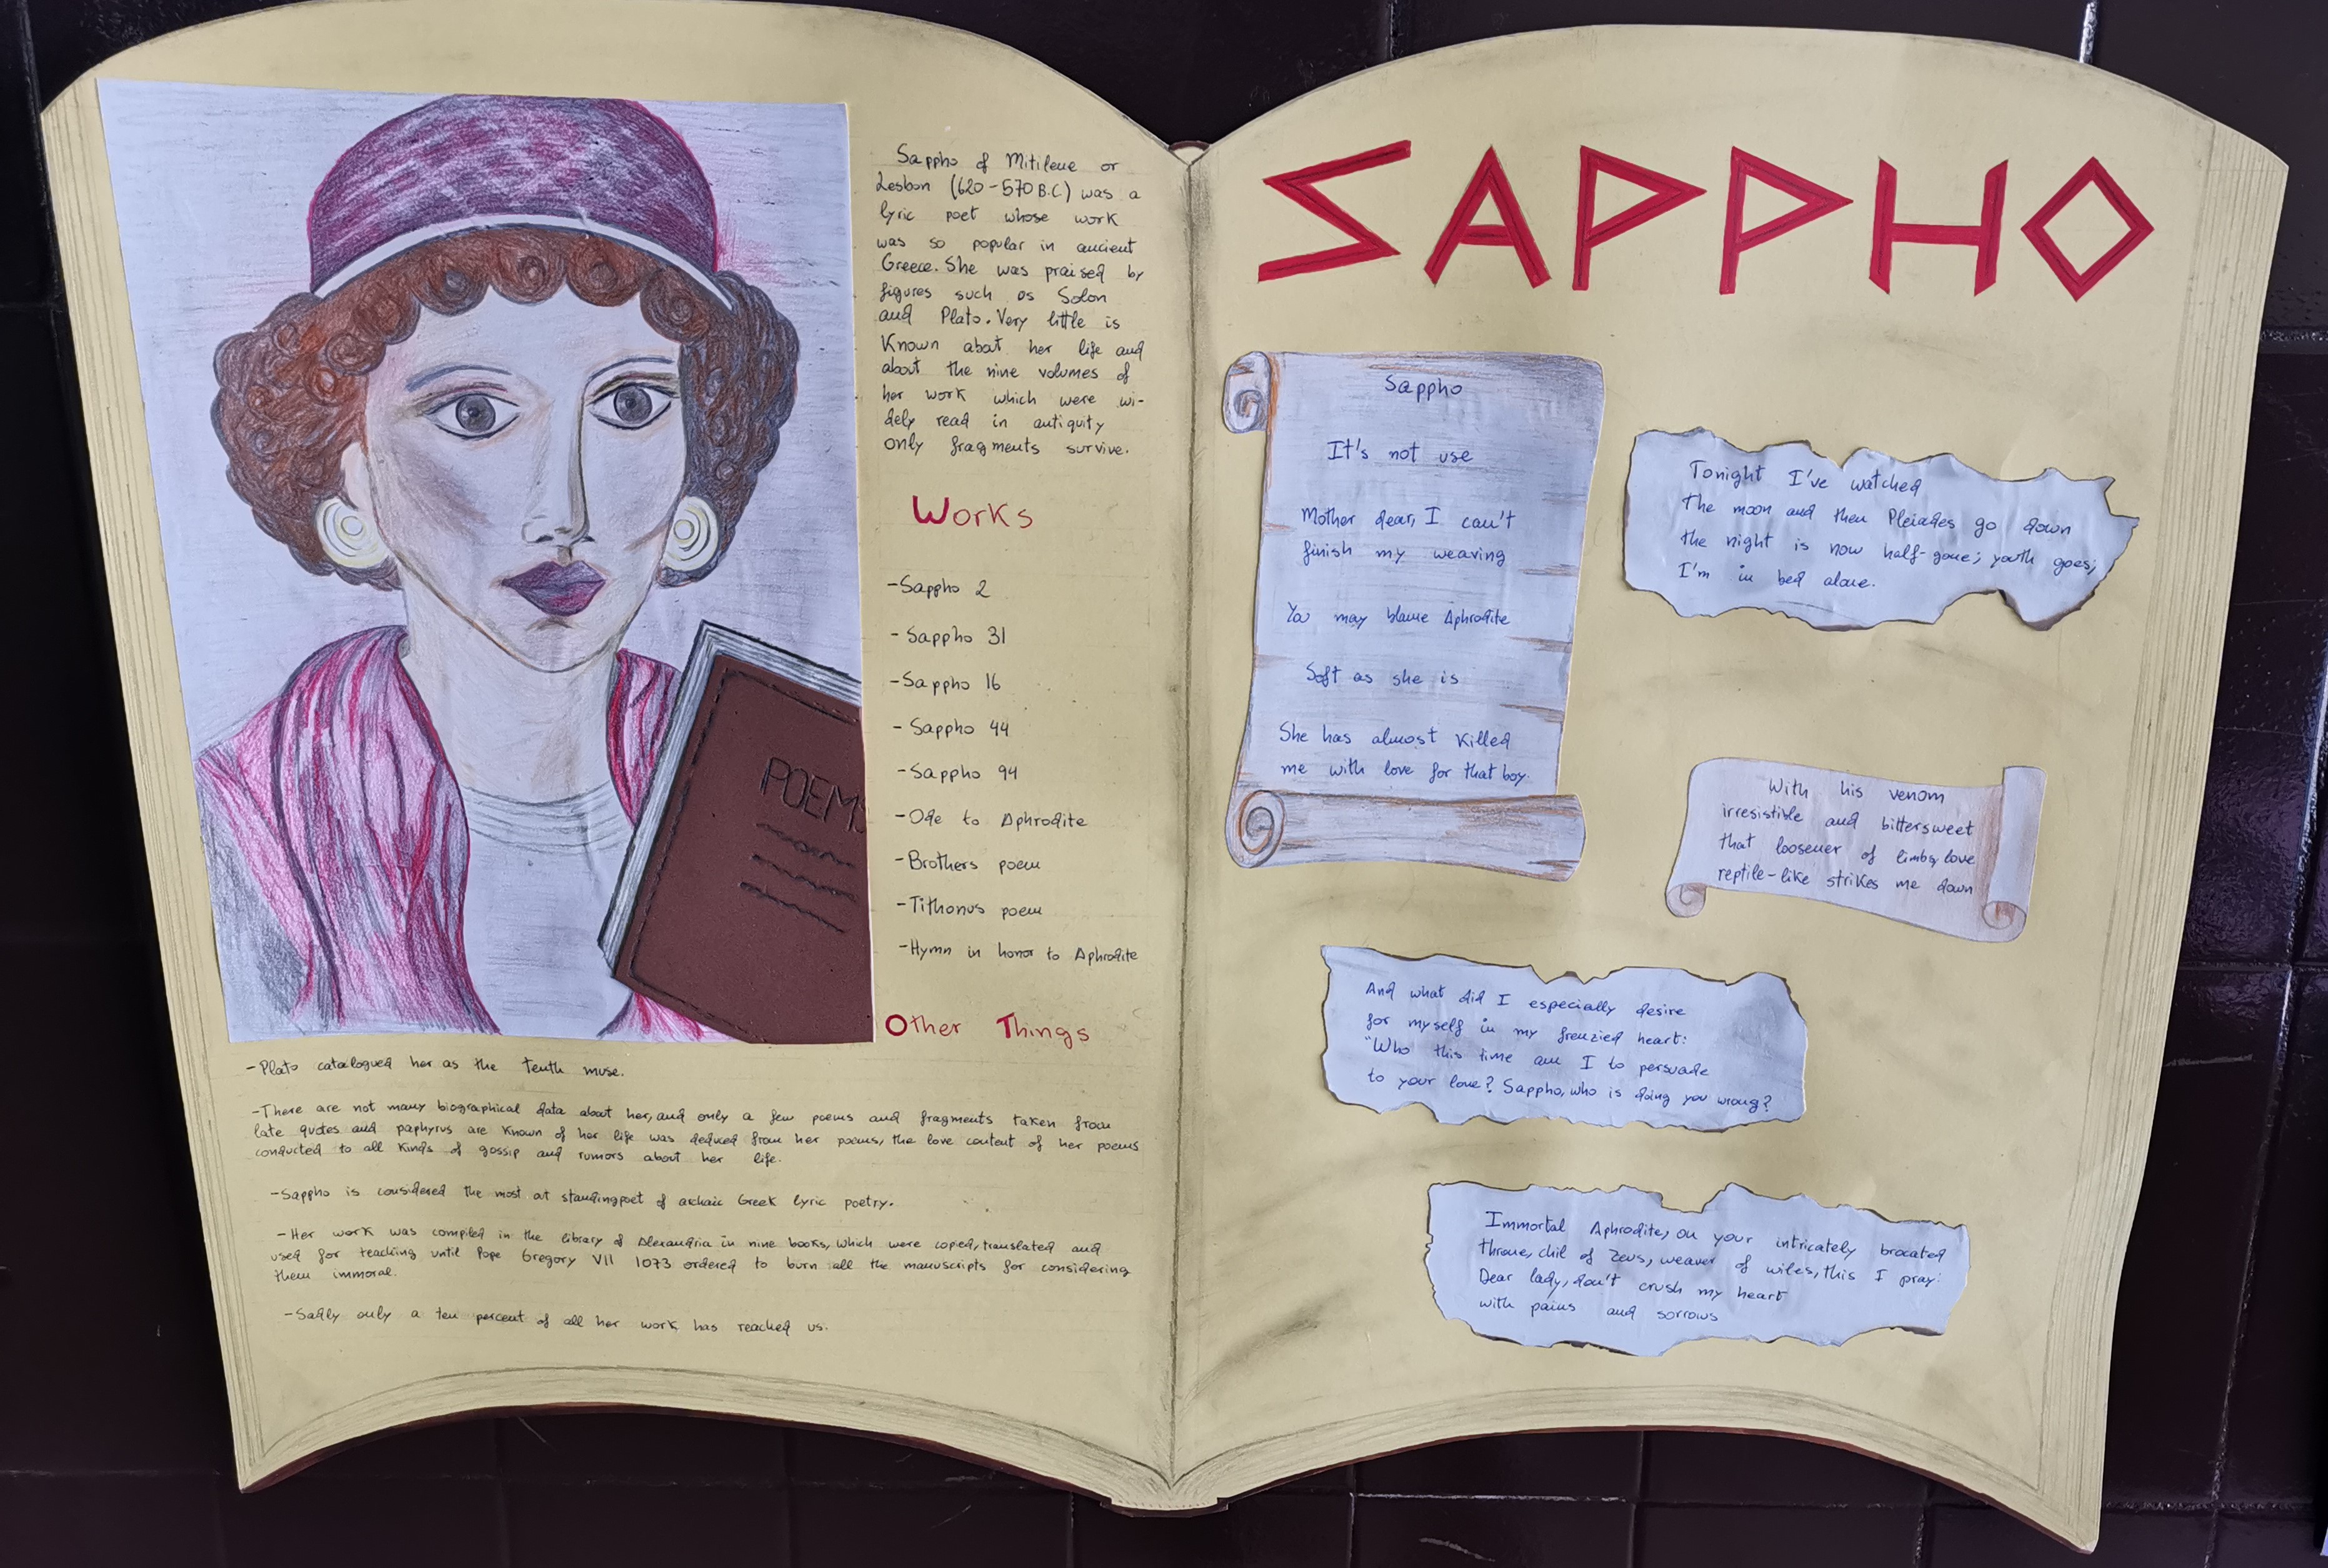 Sappho of Mitilene or
Lesbon (620-570 B.C) was a
lyric poet whose work
was so popular in ancient
Greece. She was praised by
figures such as Solon
and Plato. Very little is
Known about her life and
about the nine volumes of
her work which were wi-
dely read in antiquity
only fragments survive.
Works
-Sappho 2
-Sappho 31
-Sappho 16
-Sappho 44
-Sappho 94
-Ode to Aphrodite
-Brothers poem
-Tithonus poem
-Hymn in honor to Aphrodite
POEMS
Other Things
-Plato catalogued her as the tenth muse.
-There are not many biographical data about her, and only a few poems and fragments taken from
late quotes and paphyrus are Known of her life was deduced from her poems, the love content of her poems
conducted to all Kinds of gossip and rumors about her life.
-Sappho is considered the most at standingpoet of archaic Greek lyric poetry.
-Her work was compiled in the library of Alexandria in nine books, which were copied, translated and
used for teaching until Pope Gregory VII 1073 ordered to burn all the manuscripts for considering
them immoral.
-Sadly only a ten percent of all her work has reached us.
SAPPHO
Sappho
It's not use
Mother dear, I can't
finish my weaving
You may blame Aphrodite
Soft as she is
She has almost Killed
me with love for that boy.
Tonight I've watched
The moon and then Pleiades go down
the night is now half-gone; youth goes;
I'm in bed alone.
With his venom
irresistible and bittersweet
that loosener of limbs, love
reptile-like strikes me down
And what did I especially desire
for myself in my frenzied heart:
"Who this time am I to persuade
to your love? Sappho, who is doing you wrong?
Immortal Aphrodite, on your intricately brocated
throne, chil of Zeus, weaver of wiles, this I pray:
Dear lady, don't crush my heart
with pains and sorrows